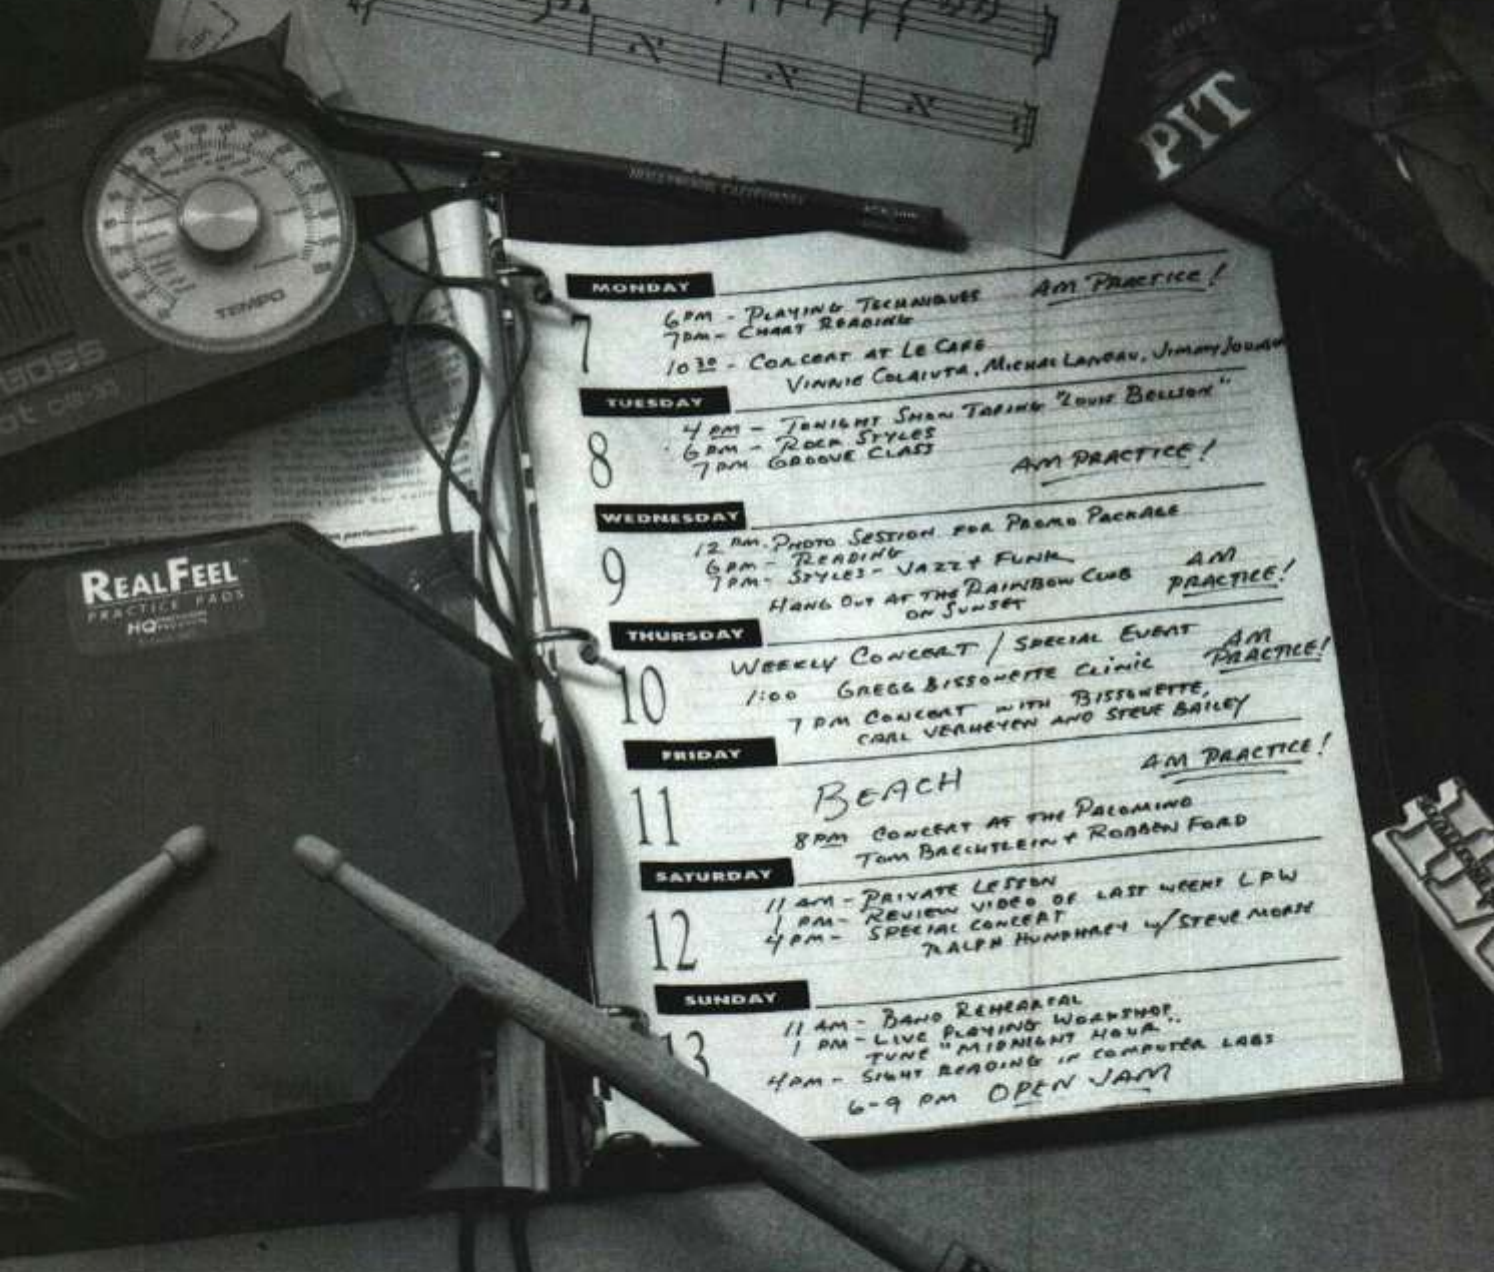 PIT
HOLLYWOOD, CALIFORNIA
TEMPO
BOSS
performance
REALFEEL
PRACTICE PADS
HQ
MONDAY
7
AM PRACTICE!
6PM - PLAYING TECHNIQUES
7PM - CHART READING
10 30 - CONCERT AT LE CAFE
VINNIE COLAIUTA, MICHAL LANDAU, JIMMY
TUESDAY
8
4 PM - TONIGHT SHOW TAPING "LOUIE BELLSON"
6 PM - ROCK STYLES
7 PM GROOVE CLASS
AM PRACTICE!
WEDNESDAY
9
12 PM - PHOTO SESSION FOR PROMO PACKAGE
6PM - READING
7PM - STYLES - JAZZ + FUNK
HANG OUT AT THE RAINBOW CLUB
ON SUNSET
AM
PRACTICE!
THURSDAY
10
WEEKLY CONCERT / SPECIAL EVENT
AM
PRACTICE!
1:00 GREGG BISSONETTE CLINIC
7 PM CONCERT WITH BISSONETTE,
CARL VERHEYEN AND STEVE BAILEY
FRIDAY
11
BEACH
AM PRACTICE!
8PM CONCERT AT THE PALOMINO
TOM BRECHTLEIN + ROBBEN FORD
SATURDAY
12
11 AM - PRIVATE LESSON
1 PM - REVIEW VIDEO OF LAST WEEKS LPW
4 PM - SPECIAL CONCERT
RALPH HUMPHREY w/ STEVE MORSE
SUNDAY
13
11 AM - BAND REHEARSAL
1 PM - LIVE PLAYING WORKSHOP
TUNE "MIDNIGHT HOUR"
4PM - SIGHT READING IN COMPUTER LABS
6-9 PM OPEN JAM